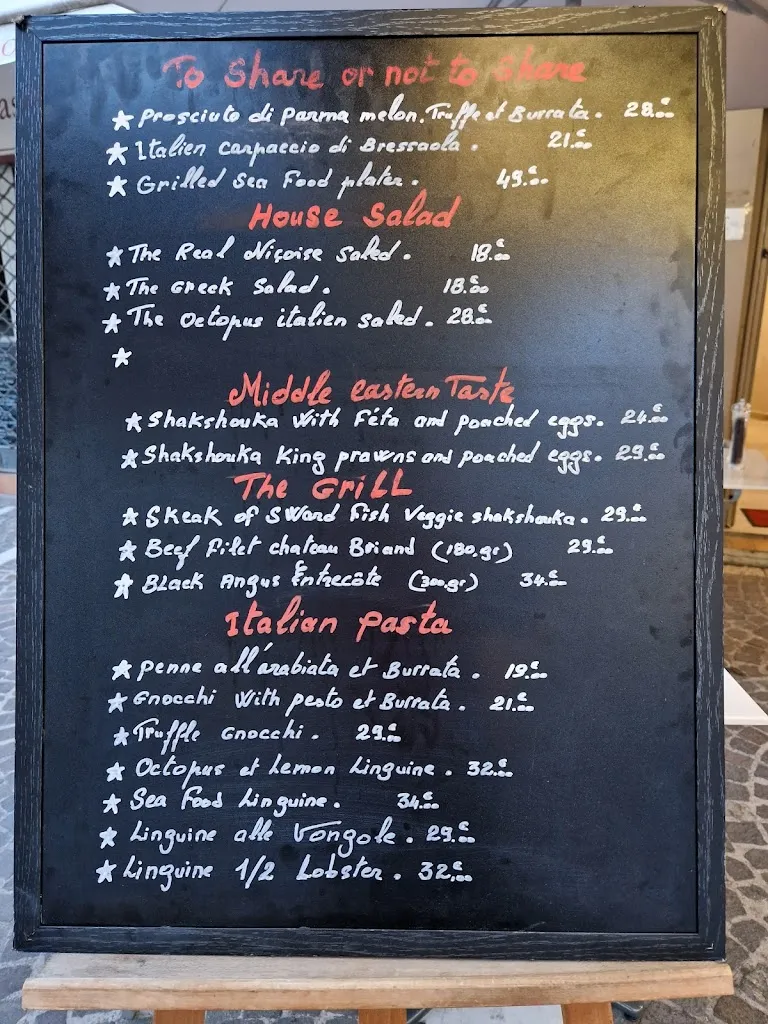 To Share or not to Share
★ Prosciuto di Parma melon. Truffe et Burrata. 28.€00
★ Italien carpaccio di Bressaola. 21.€00
★ Grilled Sea Food plater. 49.€00
House Salad
★ The Real Niçoise saled. 18.€00
★ The Greek Salad. 18.€00
★ The Octopus italien saled. 28.€00
★
Middle eastern Taste
★ Shakshouka with Féta and poached eggs. 24.€00
★ Shakshouka King prawns and poached eggs. 29.€00
The Grill
★ Skeak of Sword Fish Veggie shakshouka. 29.€00
★ Beef Filet chateau Briand (180.gr) 29.€00
★ Black Angus Entrecôte (300.gr) 34.€00
Italian pasta
★ Penne all'arabiata et Burrata. 19.€00
★ Gnocchi with pesto et Burrata. 21.€00
★ Truffle Gnocchi. 29.€00
★ Octopus et Lemon Linguine. 32.€00
★ Sea Food Linguine. 34.€00
★ Linguine alle Vongole. 29.€00
★ Linguine 1/2 Lobster. 32.€00